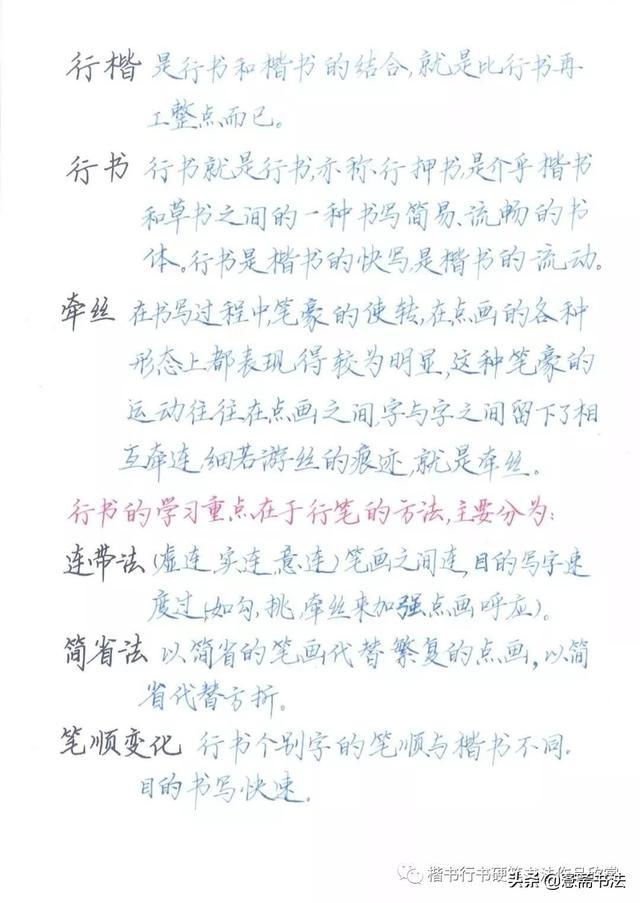 行楷 是行书和楷书的结合,就是比行书再
工整点而已。
行书 行书就是行书,亦称、行押书,是介乎楷书
和草书之间的一种书写简易、流畅的书
体。行书是楷书的快写,是楷书的流动。
牵丝 在书写过程中,笔豪的使转,在点画的各种
形态上都表现得较为明显,这种笔豪的
运动往往在点画之间,字与字之间留下了相
互牵连,细若游丝的痕迹,就是牵丝。
行书的学习重点在于行笔的方法,主要分为:
连带法 (虚连,实连,意连)笔画之间连,目的写字速
度过(如勾,挑,牵丝来加强点画呼应)。
简省法 以简省的笔画代替繁复的点画,以简
省代替方折。
笔顺变化 行书个别字的笔顺与楷书不同.
目的书写快速.
楷书行书硬笔书法作品欣赏
头条@慧斋书法